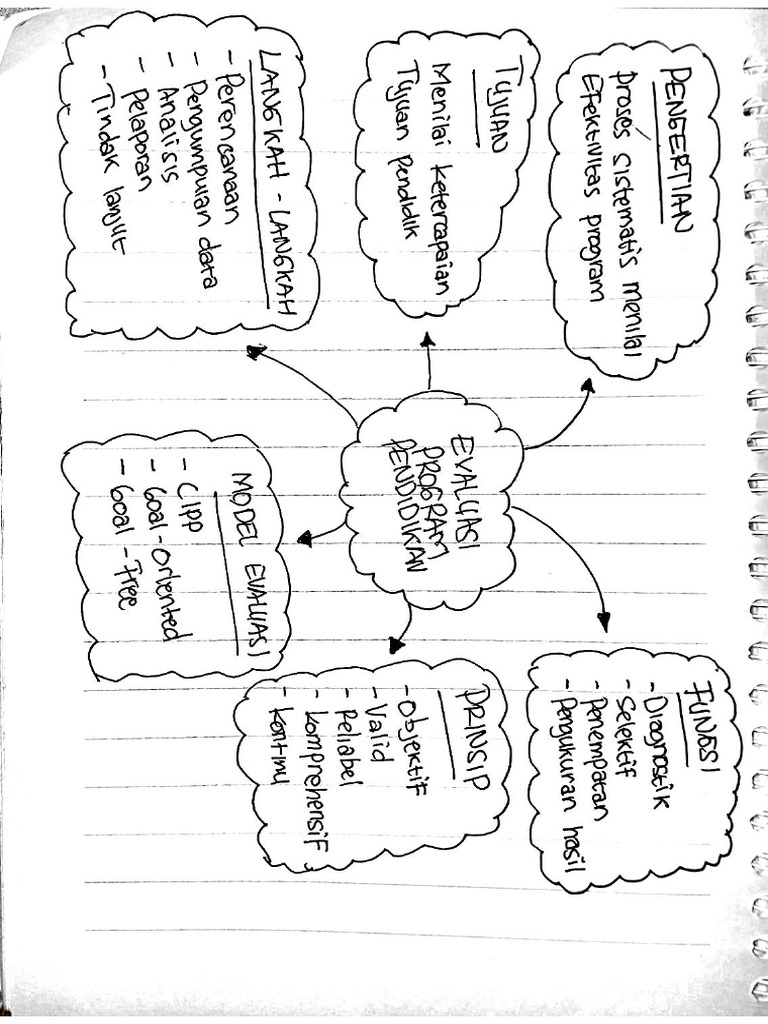 EVALUASI
PROGRAM
PENDIDIKAN
PENGERTIAN
Proses sistematis menilai
Efektivitas program
TUJUAN
Menilai ketercapaian
Tujuan pendidik
LANGKAH - LANGKAH
- Perencanaan
- Pengumpulan data
- Analisis
- Pelaporan
- Tindak lanjut
FUNGSI
- Diagnostik
- Selektif
- Penempatan
- Pengukuran hasil
PRINSIP
- Objektif
- Valid
- Reliabel
- Komprehensif
- Kontinu
MODEL EVALUASI
- CIPP
- Goal-Oriented
- Goal-Free